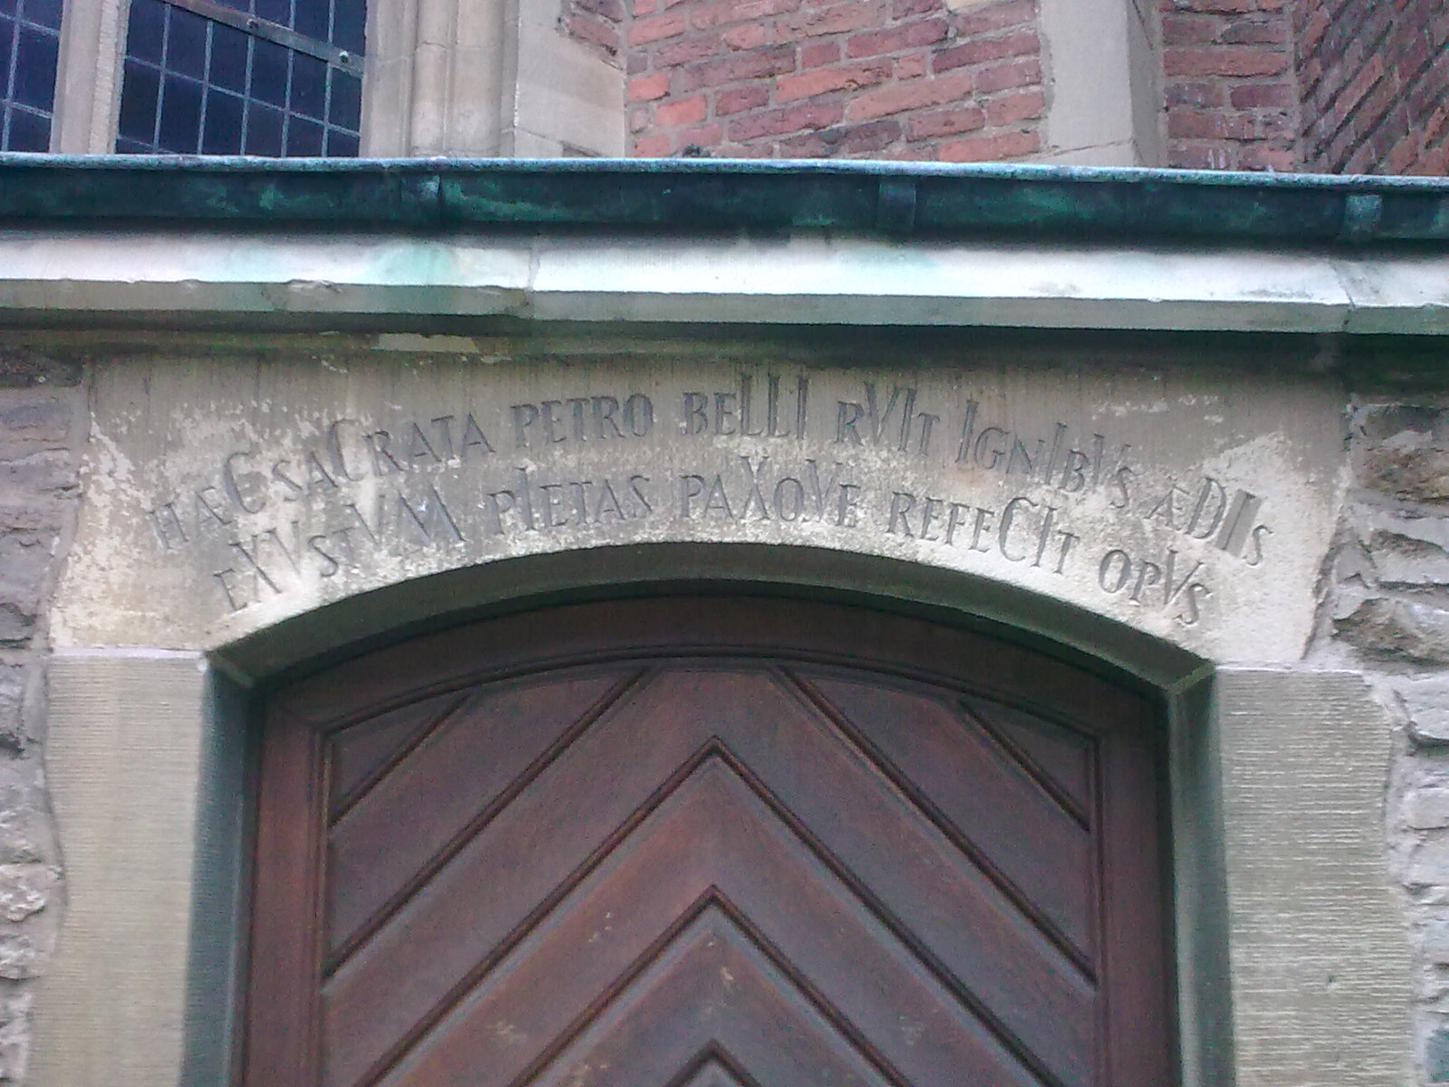 HÆC SACRATA PETRO BELLI RVIT IGNIBVS ÆDIS
EXVSTVM PIETAS PAXQVE REFECIT OPVS